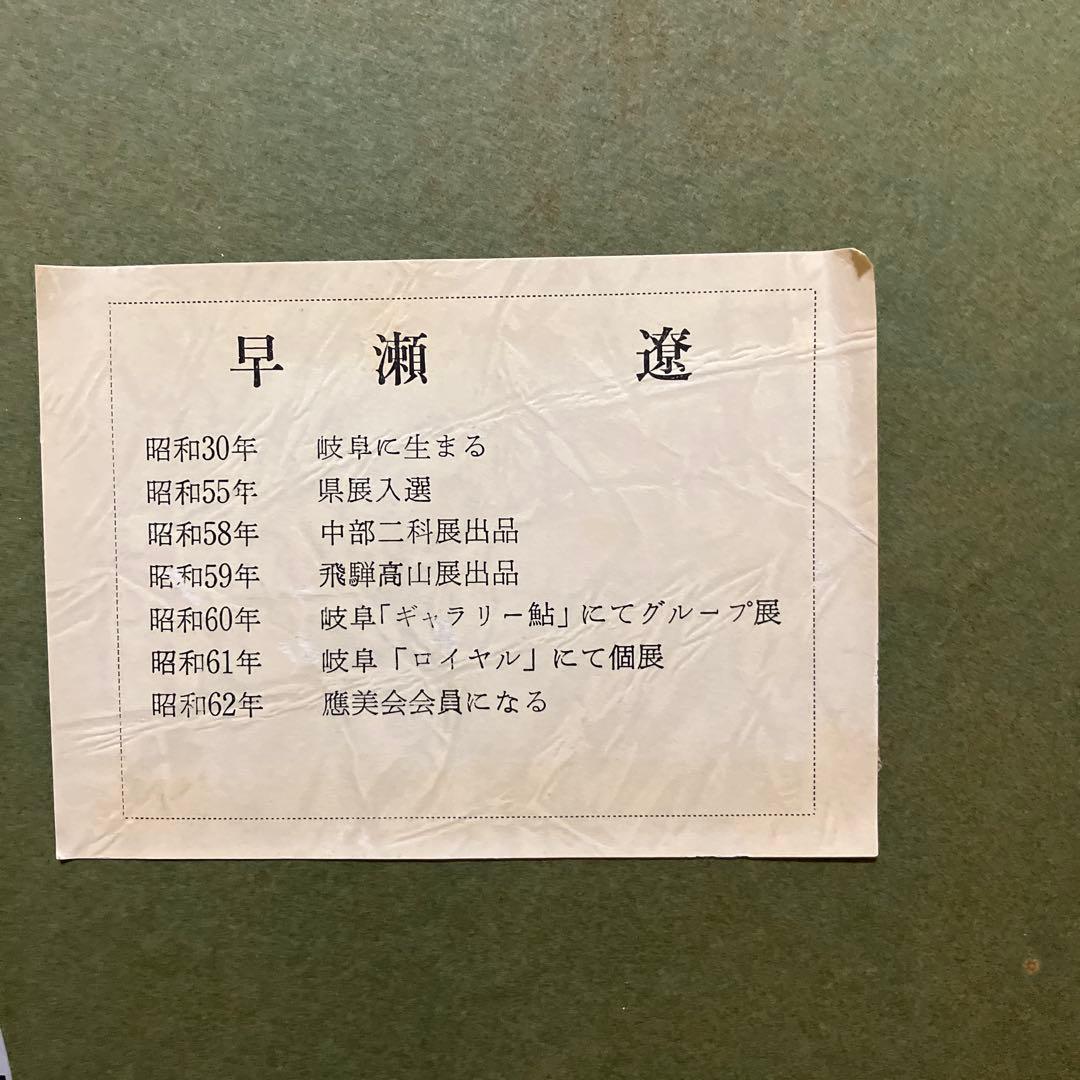 早瀬 遼
昭和30年 岐阜に生まる
昭和55年 県展入選
昭和58年 中部二科展出品
昭和59年 飛騨高山展出品
昭和60年 岐阜「ギャラリー鮎」にてグループ展
昭和61年 岐阜「ロイヤル」にて個展
昭和62年 應美会会員になる